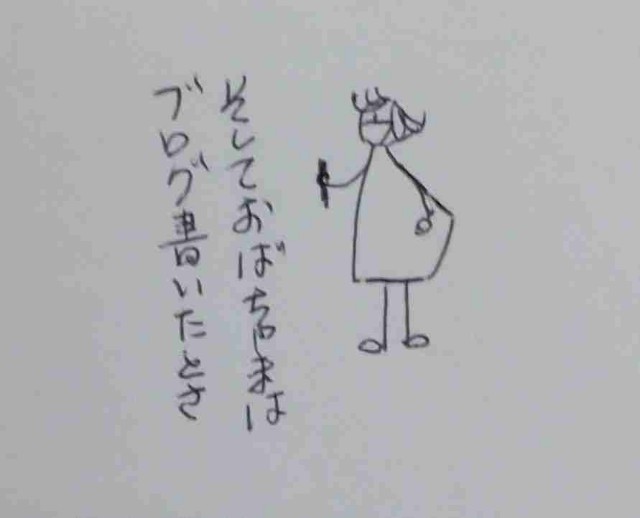 そしておばちゃまは
ブログ書いたとさ